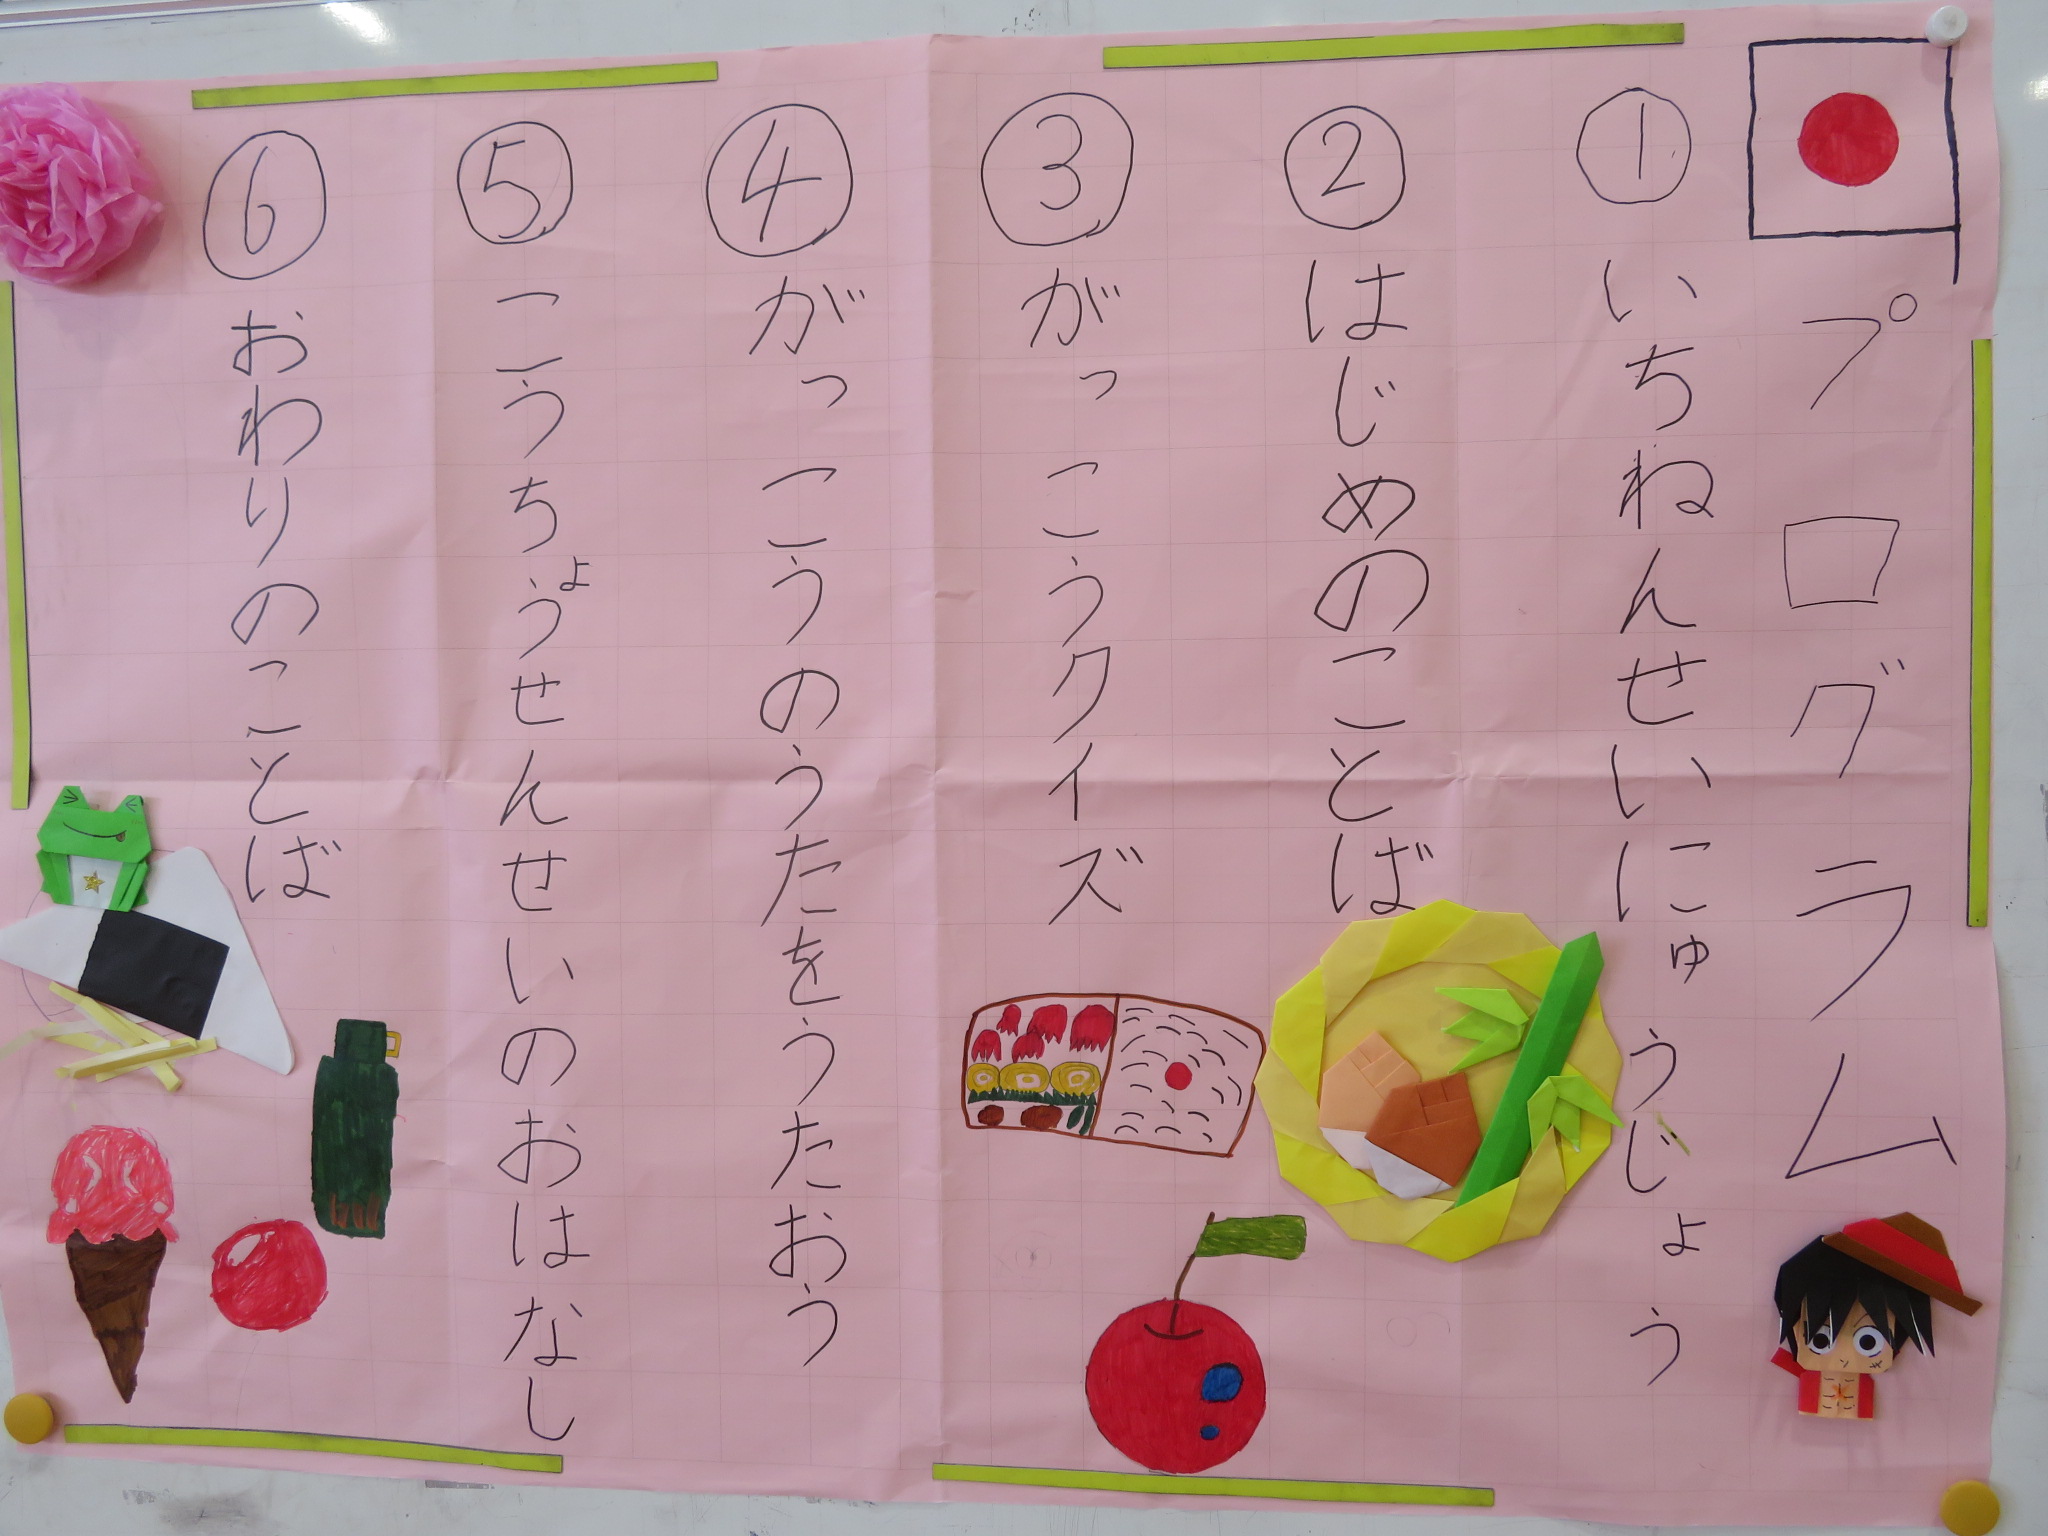 プログラム
①いちねんせいにゅうじょう
②はじめのことば
③がっこうクイズ
④がっこうのうたをうたおう
⑤こうちょうせんせいのおはなし
⑥おわりのことば